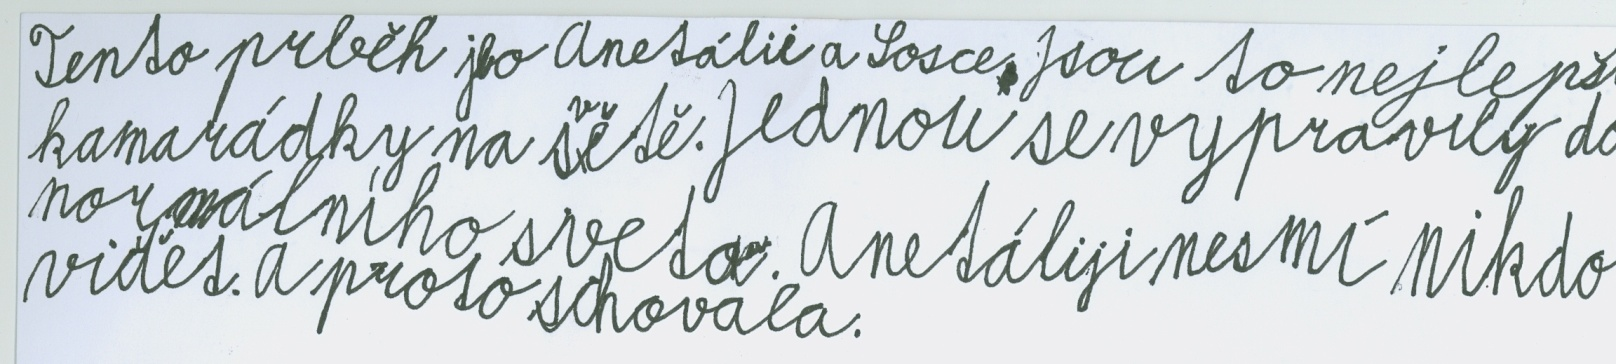 Tento prběh jeo Anetálii a Sosce. Jsou to nejlepš
kamarádky na světě. Jednou se vypravily do
normálního sveta. Anetáliji nesmí nikdo
vidět. A proto schovala.